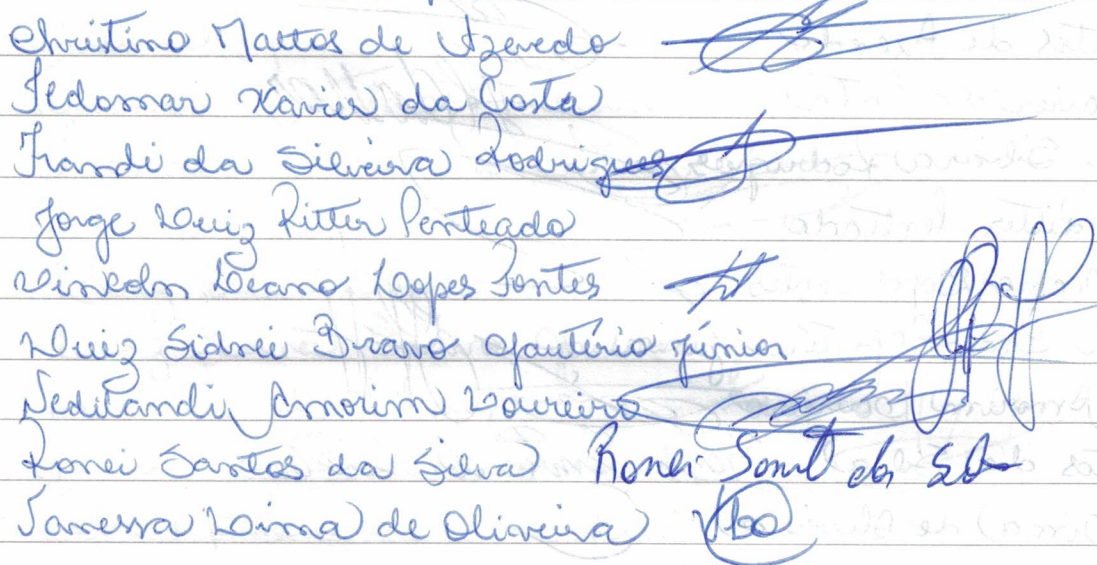 Christino Mattos de Azevedo
Ildomar Xavier da Costa
Irandi da Silveira Rodrigues
Jorge Luiz Ritter Penteado
Linkoln Leano Lopes Fontes
Luiz Sidnei Bravo Gautério Júnior
Nedilandi Amorim Loureiro
Ronei Santos da Silva Ronei Sant da Sil
Vanessa Lima de Oliveira